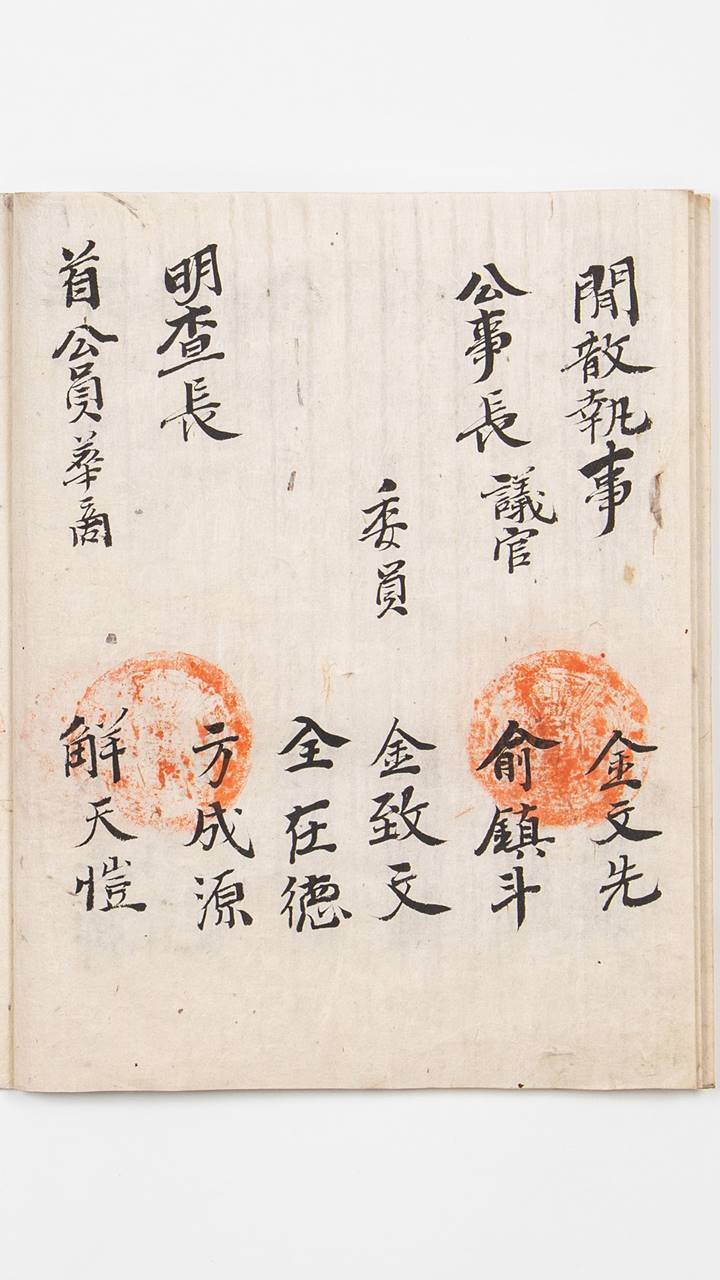 閒散執事 金文先
公事長 議官 俞鎮斗
委員 金致文
全在德
明查長 方成源
首公員 華商 解天愷